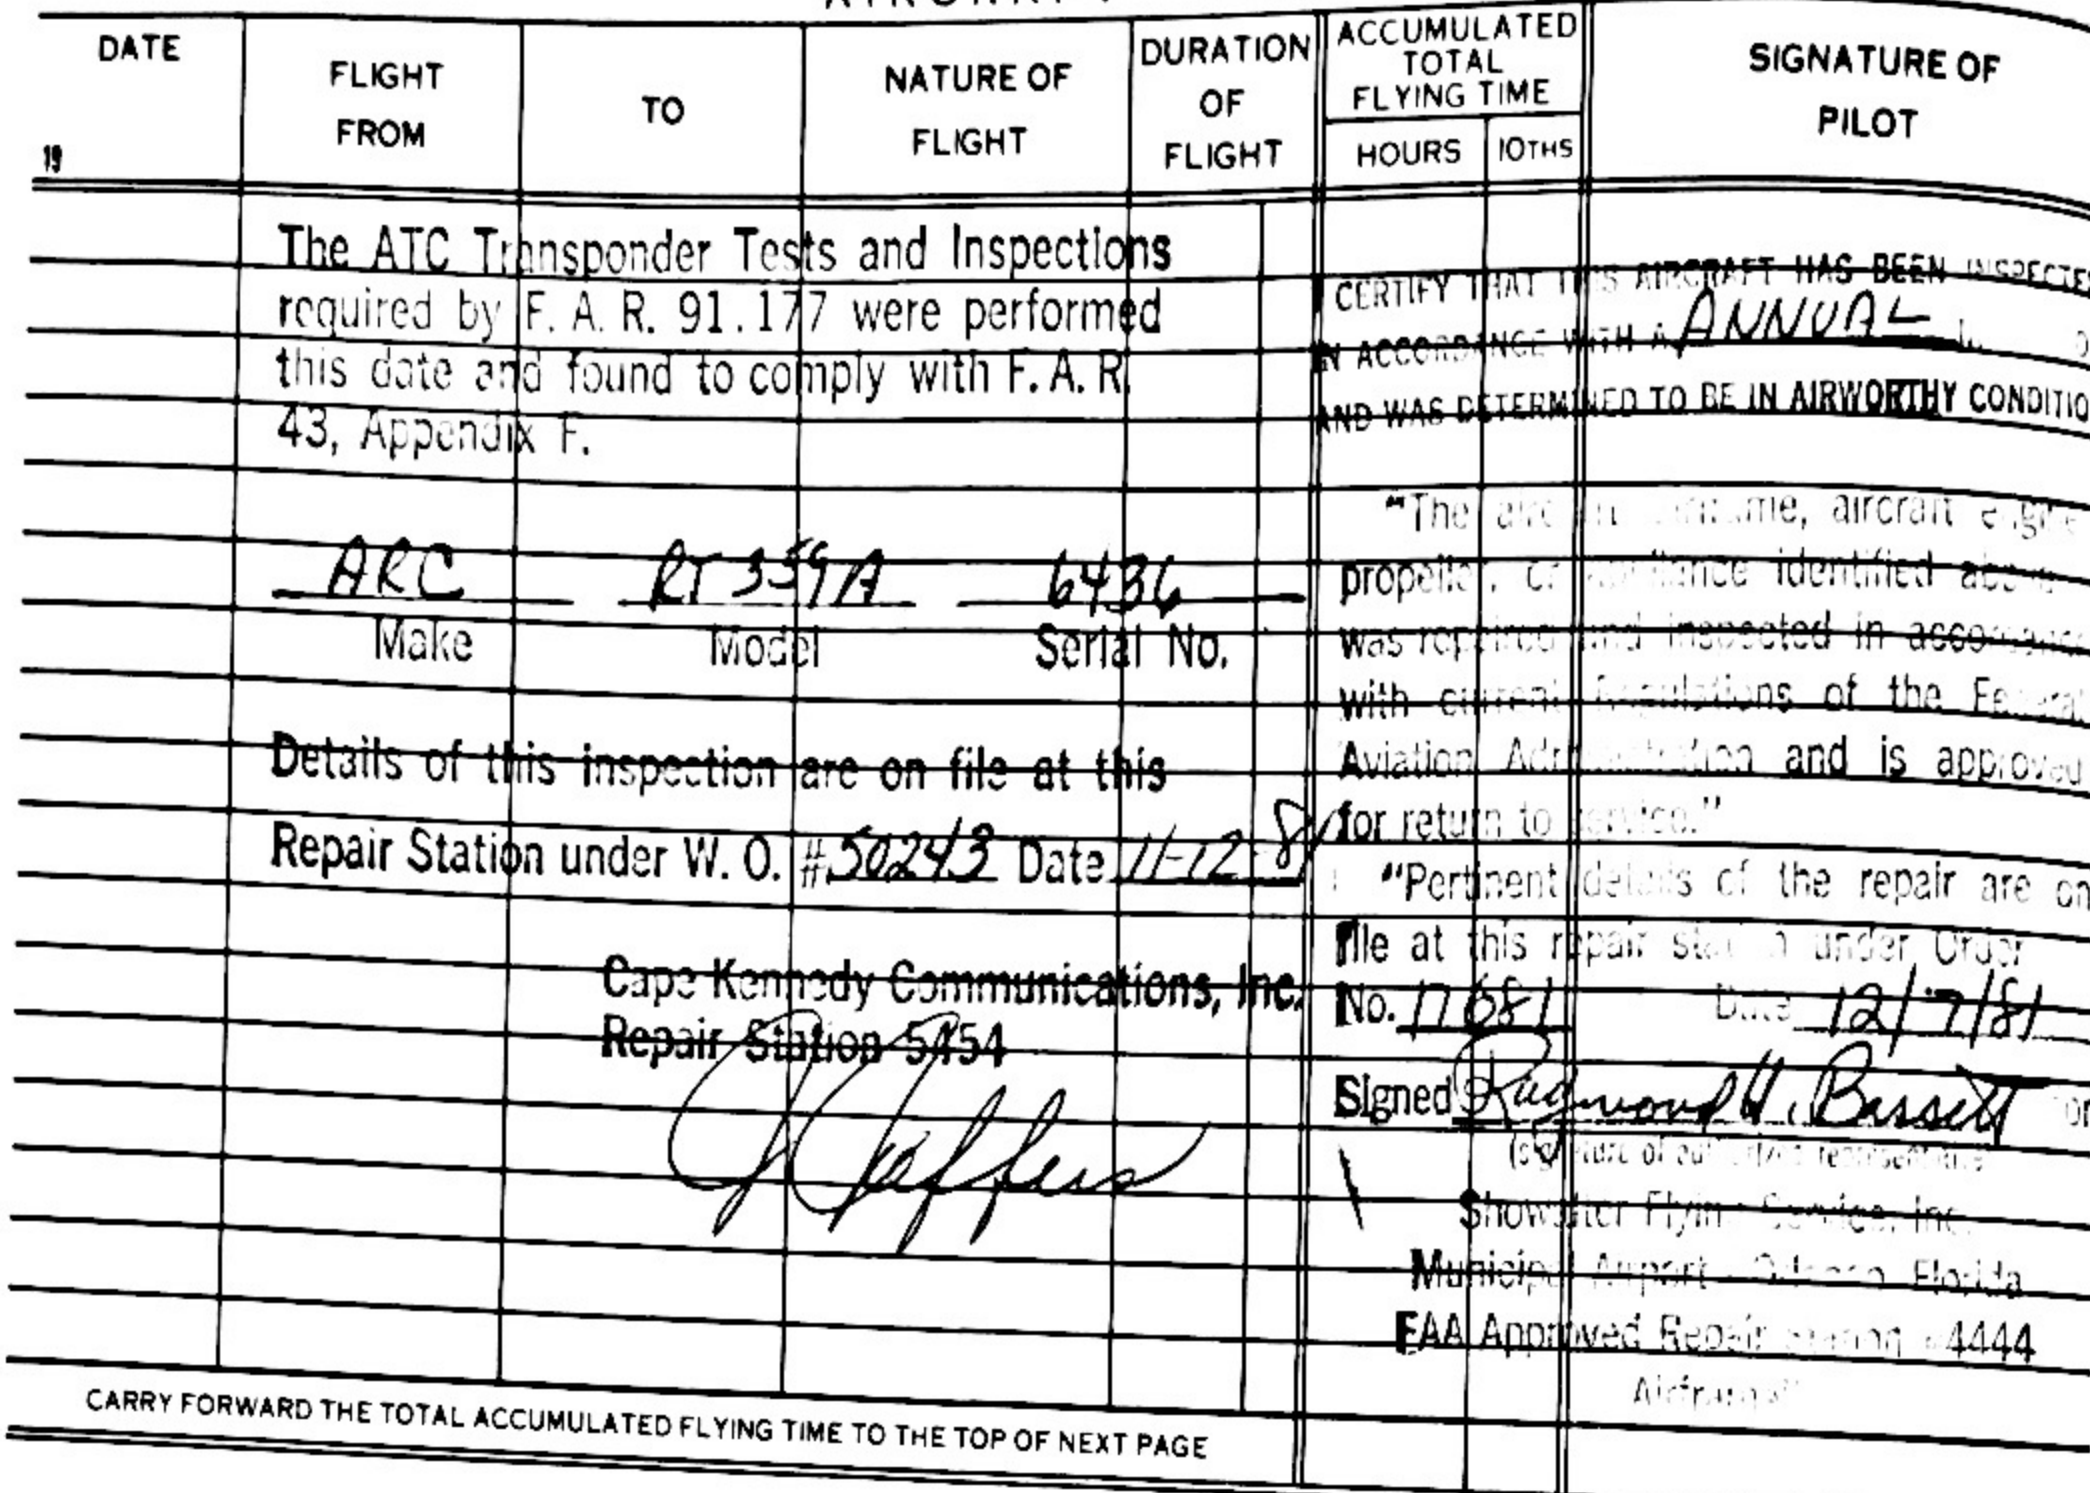 DATE
19
FLIGHT
FROM
TO
NATURE OF
FLIGHT
DURATION
OF
FLIGHT
ACCUMULATED
TOTAL
FLYING TIME
HOURS
10THS
SIGNATURE OF
PILOT
The ATC Transponder Tests and Inspections
required by F. A. R. 91.177 were performed
this date and found to comply with F. A. R.
43, Appendix F.
ARC RT 359A 6436
Make Model Serial No.
Details of this inspection are on file at this
Repair Station under W. O. # 50243 Date 11-12-81
Cape Kennedy Communications, Inc.
Repair Station 5454
I CERTIFY THAT THIS AIRCRAFT HAS BEEN INSPECTED
IN ACCORDANCE WITH A ANNUAL
AND WAS DETERMINED TO BE IN AIRWORTHY CONDITIO
"The aircraft airframe, aircraft engine
propeller, or appliance identified above
was repaired and inspected in accordance
with current Regulations of the Federal
Aviation Administration and is approved
for return to service."
"Pertinent details of the repair are on
file at this repair station under Order
No. 17681 Date 12/7/81
Signed Raymond H. Bassett
(signature of authorized representative
Showalter Flying Service, Inc.
Municipal Airport - Orlando Florida
FAA Approved Repair Station 4444
Airframe"
CARRY FORWARD THE TOTAL ACCUMULATED FLYING TIME TO THE TOP OF NEXT PAGE